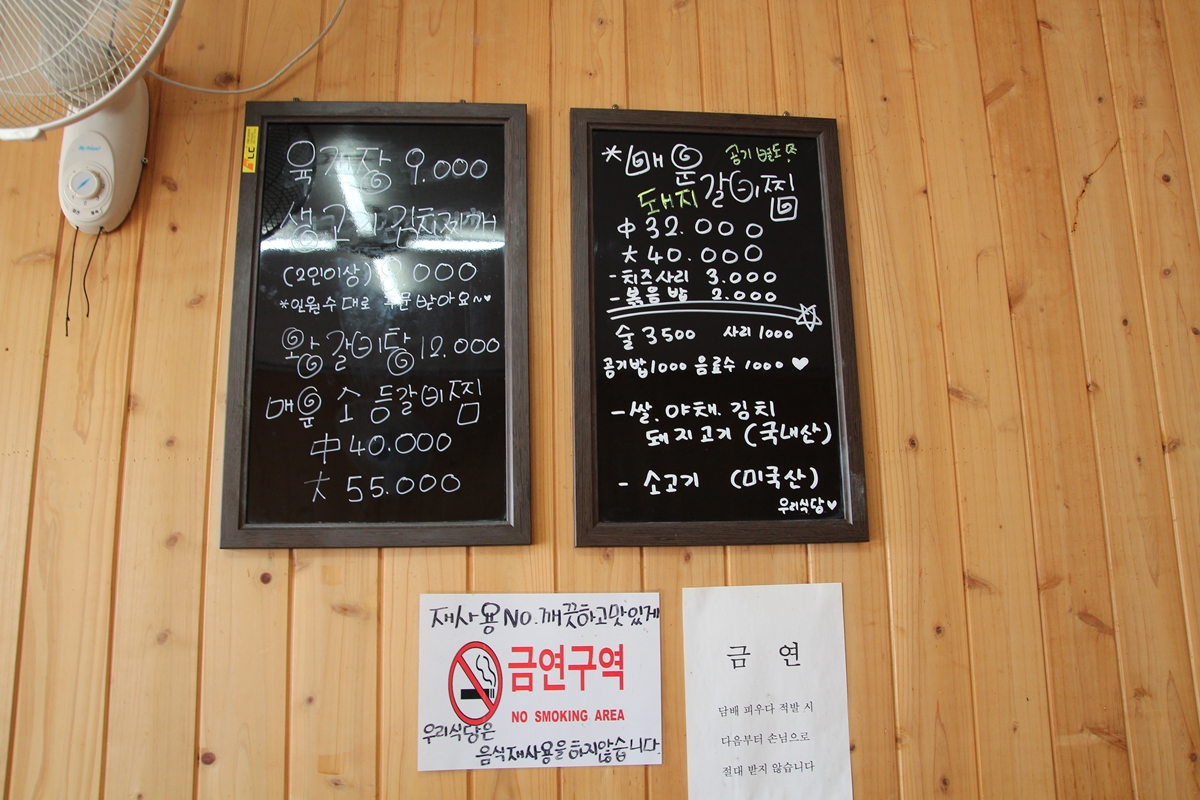 육개장 9.000
생고기 김치찌개
(2인이상) 9.000
*인원수대로 주문 받아요~♥
왕갈비탕 12.000
매운 소 등갈비찜
中 40.000
大 55.000
*매운 공기 별도
돼지갈비찜
中 32.000
大 40.000
-치즈사리 3.000
-볶음밥 2.000
술 3500 사리 1000
공기밥 1000 음료수 1000 ♥
-쌀. 야채. 김치
돼지고기 (국내산)
- 소고기 (미국산)
우리식당♥
재사용 NO. 깨끗하고맛있게
금연구역
NO SMOKING AREA
우리식당은
음식재사용을하지않습니다.
금 연
담배 피우다 적발 시
다음부터 손님으로
절대 받지 않습니다